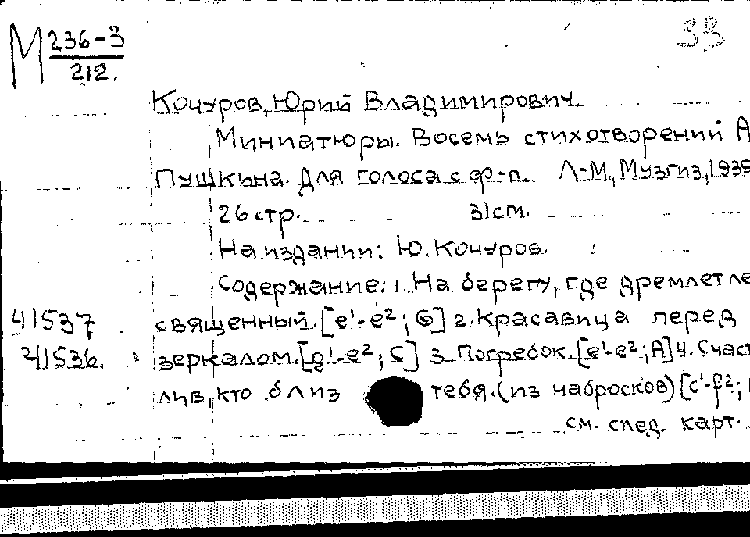 М 236-3
212.
33
Кочуров, Юрий Владимирович.
Миниатюры. Восемь стихотворений А
Пушкина. Для голоса с ф-п. Л-М, Музгиз, 1939
26 стр. 31 см.
На издании: Ю. Кочуров.
Содержание: 1. На берегу, где дремлет ле
41537 священный. [e¹-e²; G] 2. Красавица перед
41536. зеркалом. [g¹-e²; C] 3. Погребок. [e¹-e²; A] 4. Счаст
лив, кто близ тебя. (из набросков) [c¹-f²;
см. след. карт.